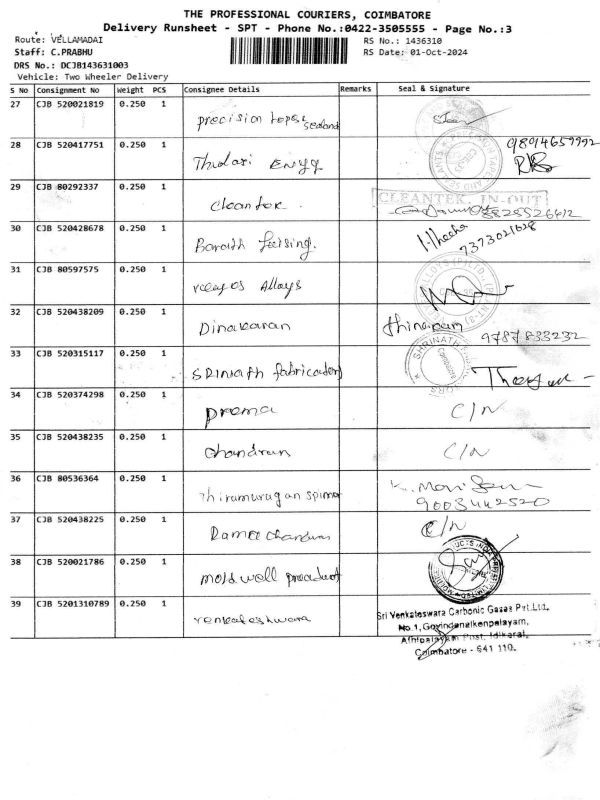 THE PROFESSIONAL COURIERS, COIMBATORE
Delivery Runsheet - SPT - Phone No.:0422-3505555 - Page No.:3
Route: VELLAMADAI
RS No.: 1436310
Staff: C.PRABHU
RS Date: 01-Oct-2024
DRS No.: DCJB143631003
Vehicle: Two Wheeler Delivery
S No Consignment No Weight PCS Consignee Details Remarks Seal & Signature
27 CJB 520021819 0.250 1
precision
28 CJB 520417751 0.250 1 9894659992
Thulasi Engg
29 CJB 80292337 0.250 1 CLEANTEK. IN-OUT
Cleantek.
30 CJB 520428678 0.250 1
Barath 7373021628
31 CJB 80597575 0.250 1
Alloys
32 CJB 520438209 0.250 1
Dinakaran 9787833232
33 CJB 520315117 0.250 1 SHRINATH
fabricators
34 CJB 520374298 0.250 1
prema C/N
35 CJB 520438235 0.250 1
chandran C/N
36 CJB 80536364 0.250 1
Thirumurugan 9003442520
37 CJB 520438225 0.250 1
C/N
38 CJB 520021786 0.250 1
mold well product
39 CJB 5201310789 0.250 1
venkateshwara
Sri Venkateswara Carbonic Gases Pvt.Ltd.
No.1, Govindanaikenpalayam,
Athipalayam Post, Idikarai,
Coimbatore - 641 110.